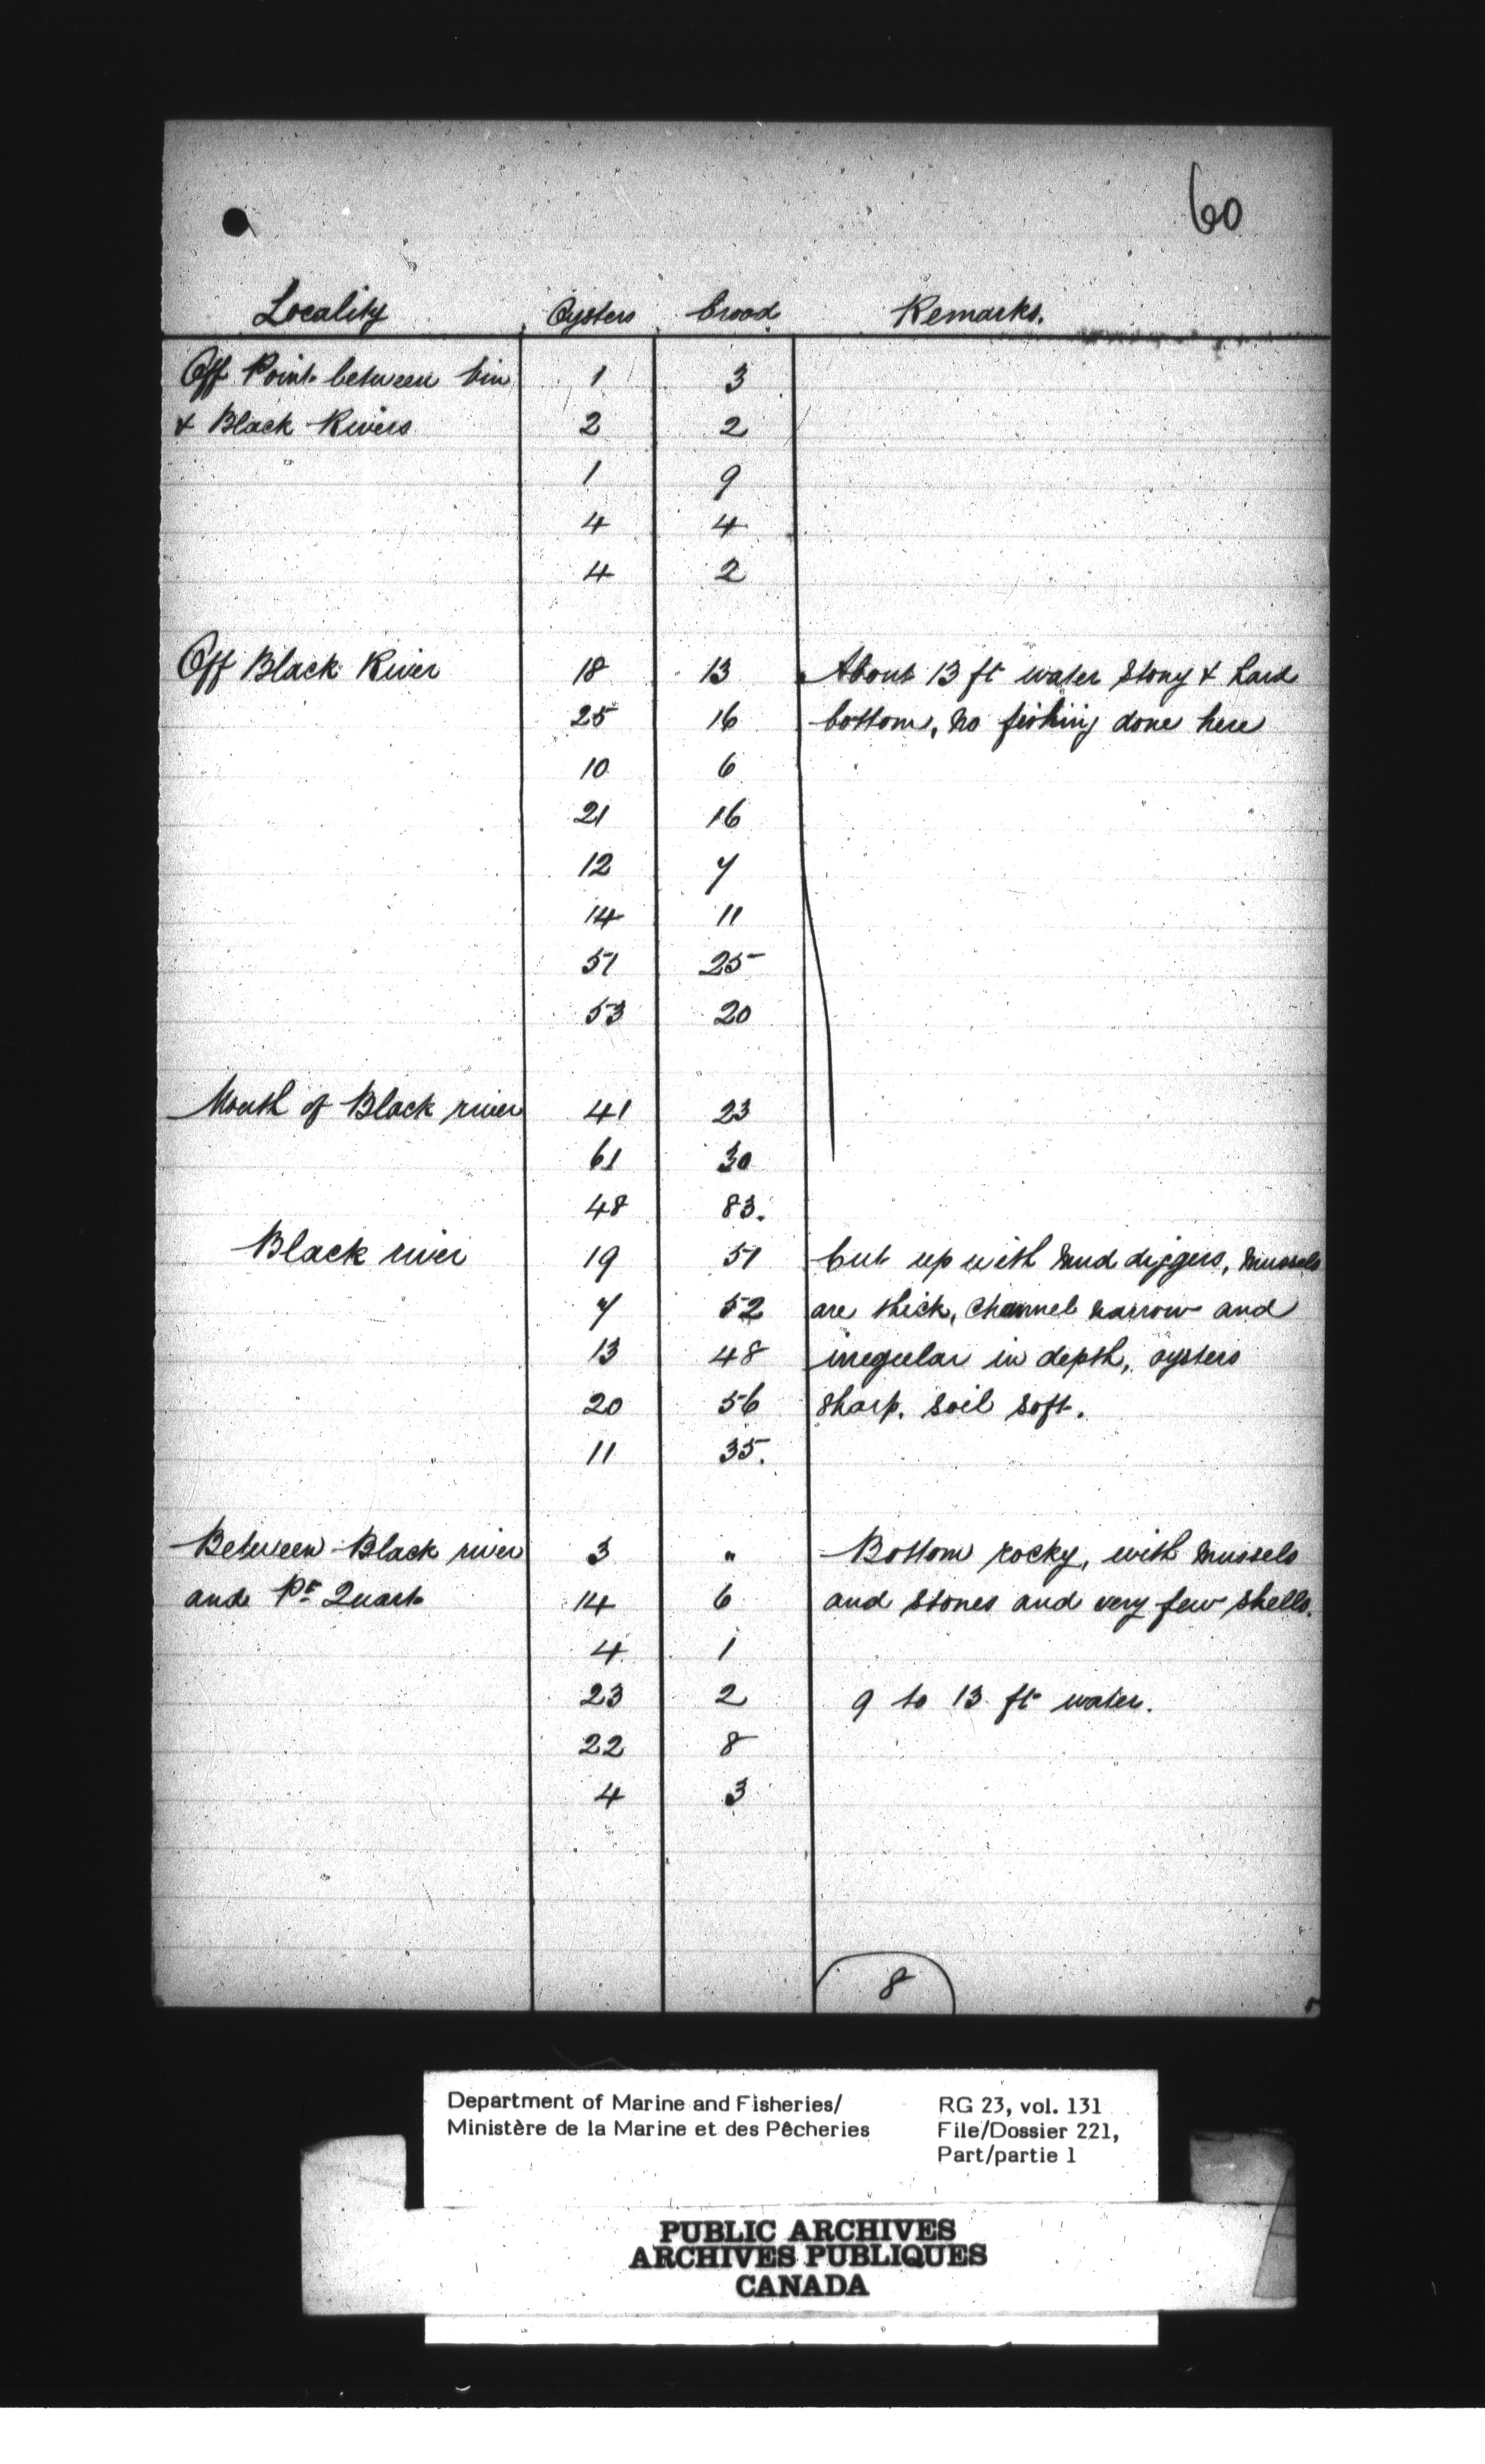 60
Locality Oysters brood Remarks.
Off Point between bin 1 3
& Black Rivers 2 2
1 9
4 4
4 2
Off Black River 18 13 About 13 ft water Stony & hard
25 16 bottom, no fishing done here
10 6
21 16
12 7
14 11
51 25
53 20
Mouth of Black river 41 23
61 30
48 83.
Black river 19 51 Cut up with mud diggers, mussels
7 52 are thick, Channel narrow and
13 48 irregular in depth, oysters
20 56 sharp. soil soft.
11 35.
Between Black river 3 " Bottom rocky, with mussels
and Pt Quart 14 6 and stones and very few shells.
4 1
23 2 9 to 13 ft water.
22 8
4 3
8
Department of Marine and Fisheries/ RG 23, vol. 131
Ministère de la Marine et des Pêcheries File/Dossier 221,
Part/partie 1
PUBLIC ARCHIVES
ARCHIVES PUBLIQUES
CANADA